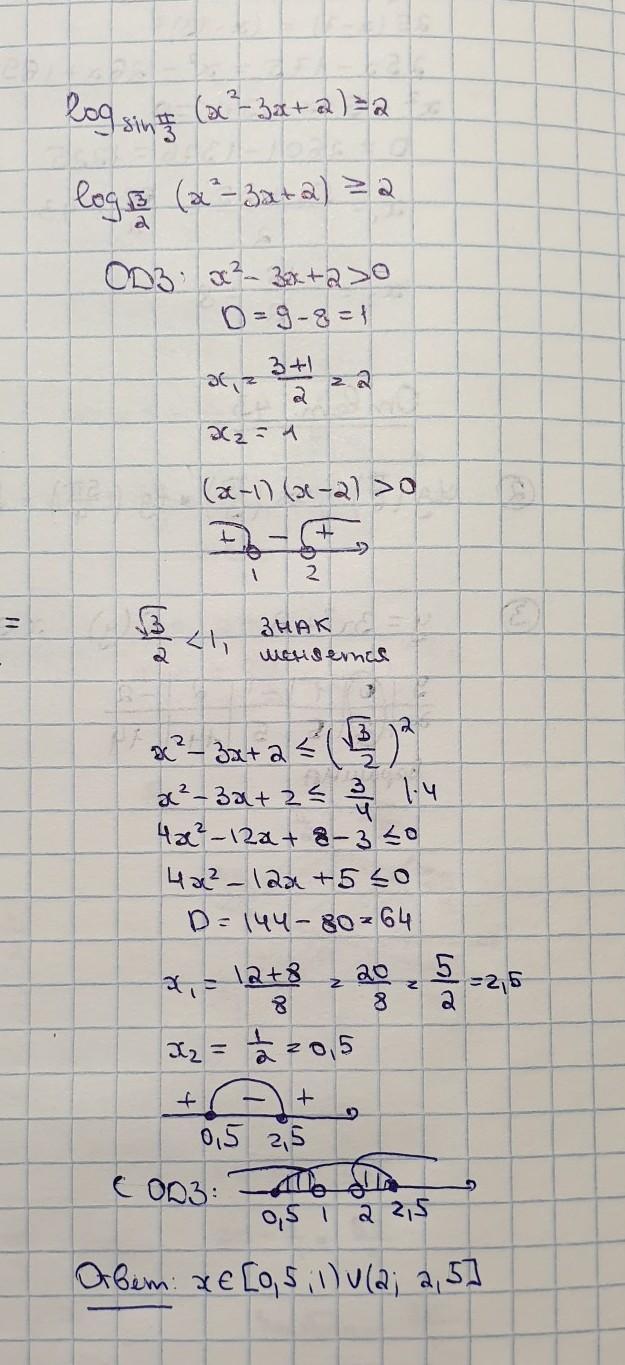 log sin π/3 (x² - 3x + 2) ≥ 2
log √3/2 (x² - 3x + 2) ≥ 2
ОДЗ: x² - 3x + 2 > 0
D = 9 - 8 = 1
x₁ = (3+1)/2 = 2
x₂ = 1
(x-1)(x-2) > 0
+ - +
1 2
=
√3/2 < 1, знак
меняется
x² - 3x + 2 ≤ (√3/2)²
x² - 3x + 2 ≤ 3/4 |·4
4x² - 12x + 8 - 3 ≤ 0
4x² - 12x + 5 ≤ 0
D = 144 - 80 = 64
x₁ = (12+8)/8 = 20/8 = 5/2 = 2,5
x₂ = 1/2 = 0,5
+ - +
0,5 2,5
С ОДЗ:
0,5 1 2 2,5
Ответ: x ∈ [0,5; 1) ∪ (2; 2,5]